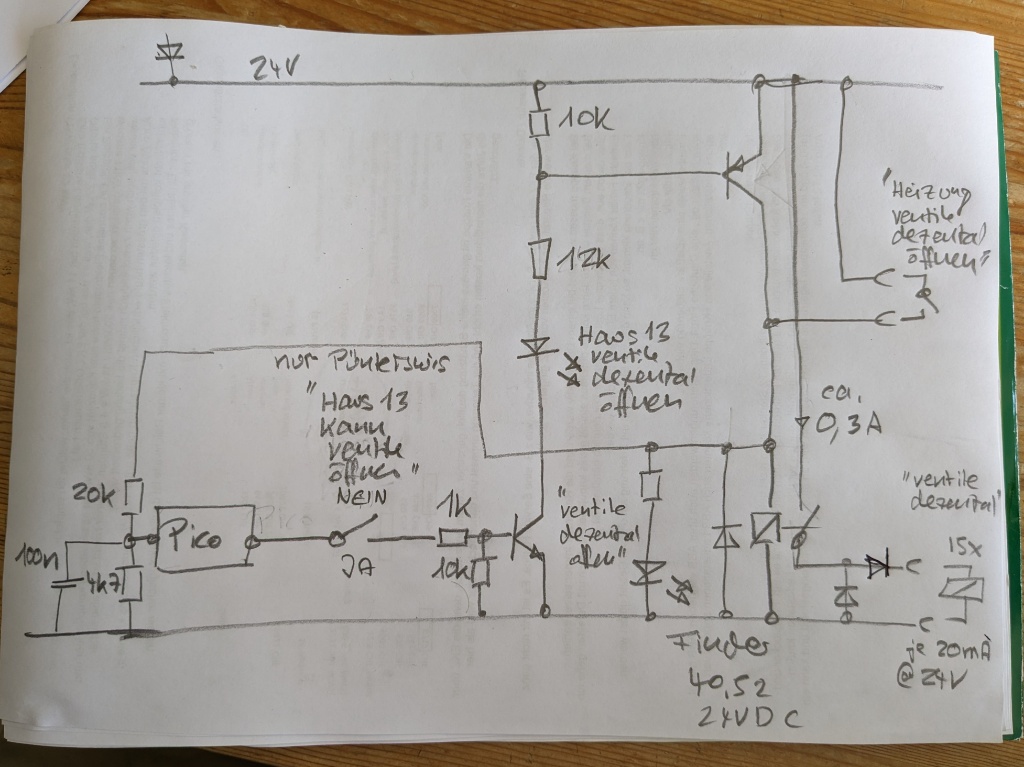 24V
10K
"Heizung
ventile
dezental
öffnen"
12k
Haus 13
ventile
dezental
öffnen
nur
"Haus 13
kann
ventile
öffnen"
NEIN
JA
ca.
0,3A
20k
100n
4k7
Pico
Pico
1k
10k
"ventile
dezentral
offen"
"ventile
dezentral"
15x
je 20mA
@ 24V
Finder
40,52
24VDC